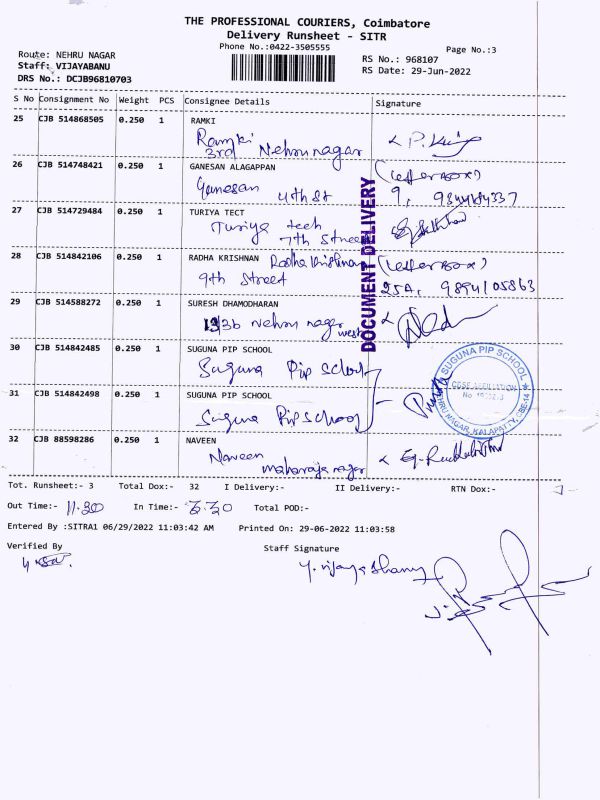 THE PROFESSIONAL COURIERS, Coimbatore
Delivery Runsheet - SITR
Phone No.:0422-3505555
Page No.:3
Route: NEHRU NAGAR
RS No.: 968107
Staff: VIJAYABANU
RS Date: 29-Jun-2022
DRS No.: DCJB96810703
S No Consignment No Weight PCS Consignee Details Signature
25 CJB 514868505 0.250 1 RAMKI
Ramki
3rd Nehru nagar
26 CJB 514748421 0.250 1 GANESAN ALAGAPPAN (Letter Box)
Ganesan 4th St 9,
27 CJB 514729484 0.250 1 TURIYA TECT
Turiya tech
7th Street
28 CJB 514842106 0.250 1 RADHA KRISHNAN Radha Krishnan (Letter Box)
9th Street 25A, 9894105863
29 CJB 514588272 0.250 1 SURESH DHAMODHARAN
Nehru nagar west
DOCUMENT DELIVERY
30 CJB 514842485 0.250 1 SUGUNA PIP SCHOOL
Suguna Pip School
31 CJB 514842498 0.250 1 SUGUNA PIP SCHOOL
Suguna Pip School
SUGUNA PIP SCHOOL
CBSE AFFILIATION
NEHRU NAGAR, KALAPATTY, CBE-14
32 CJB 88598286 0.250 1 NAVEEN
Naveen
maharaja nagar
Tot. Runsheet:- 3 Total Dox:- 32 I Delivery:- II Delivery:- RTN Dox:-
Out Time:- 11.30 In Time:- 3.30 Total POD:-
Entered By :SITRA1 06/29/2022 11:03:42 AM Printed On: 29-06-2022 11:03:58
Verified By
Staff Signature